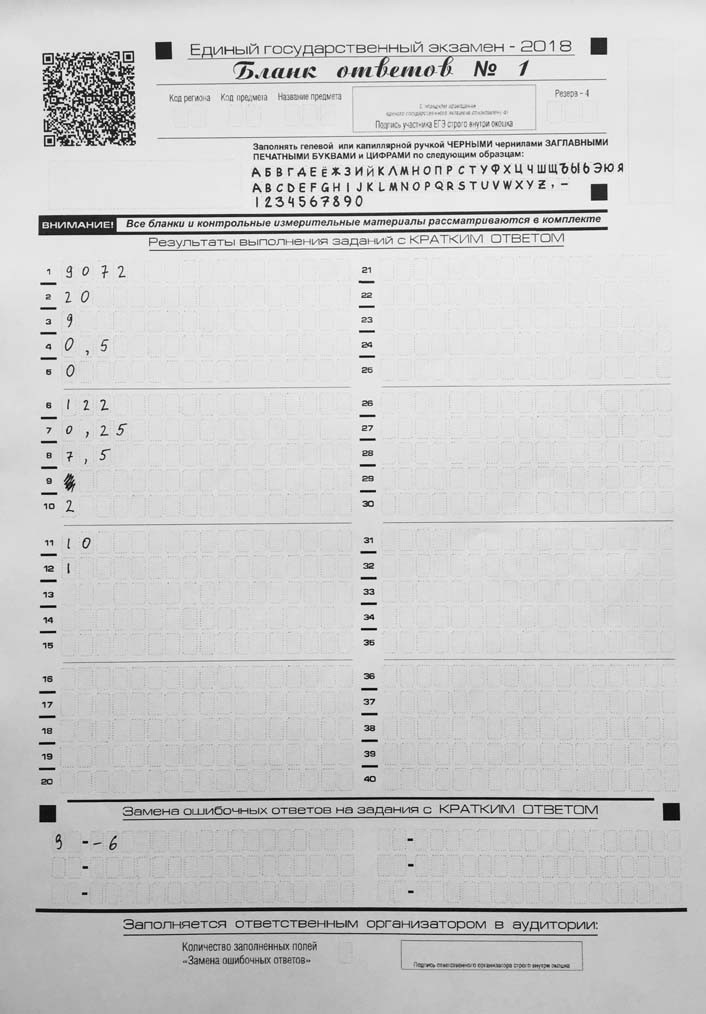 Единый государственный экзамен - 2018
Бланк ответов № 1
Код региона Код предмета Название предмета
Резерв - 4
Подпись участника ЕГЭ строго внутри окошка
Заполнять гелевой или капиллярной ручкой ЧЕРНЫМИ чернилами ЗАГЛАВНЫМИ
ПЕЧАТНЫМИ БУКВАМИ и ЦИФРАМИ по следующим образцам:
АБВГДЕЁЖЗИЙКЛМНОПРСТУФХЦЧШЩЪЫЬЭЮЯ
ABCDEFGHIJKLMNOPQRSTUVWXYZ,-
1234567890
ВНИМАНИЕ! Все бланки и контрольные измерительные материалы рассматриваются в комплекте
Результаты выполнения заданий с КРАТКИМ ОТВЕТОМ
1 9072
2 20
3 9
4 0,5
5 0
6 122
7 0,25
8 7,5
9
10 2
11 10
12 1
13
14
15
16
17
18
19
20
21
22
23
24
25
26
27
28
29
30
31
32
33
34
35
36
37
38
39
40
Замена ошибочных ответов на задания с КРАТКИМ ОТВЕТОМ
9 - -6 -
- -
- -
Заполняется ответственным организатором в аудитории:
Количество заполненных полей
«Замена ошибочных ответов»
Подпись ответственного организатора строго внутри окошка